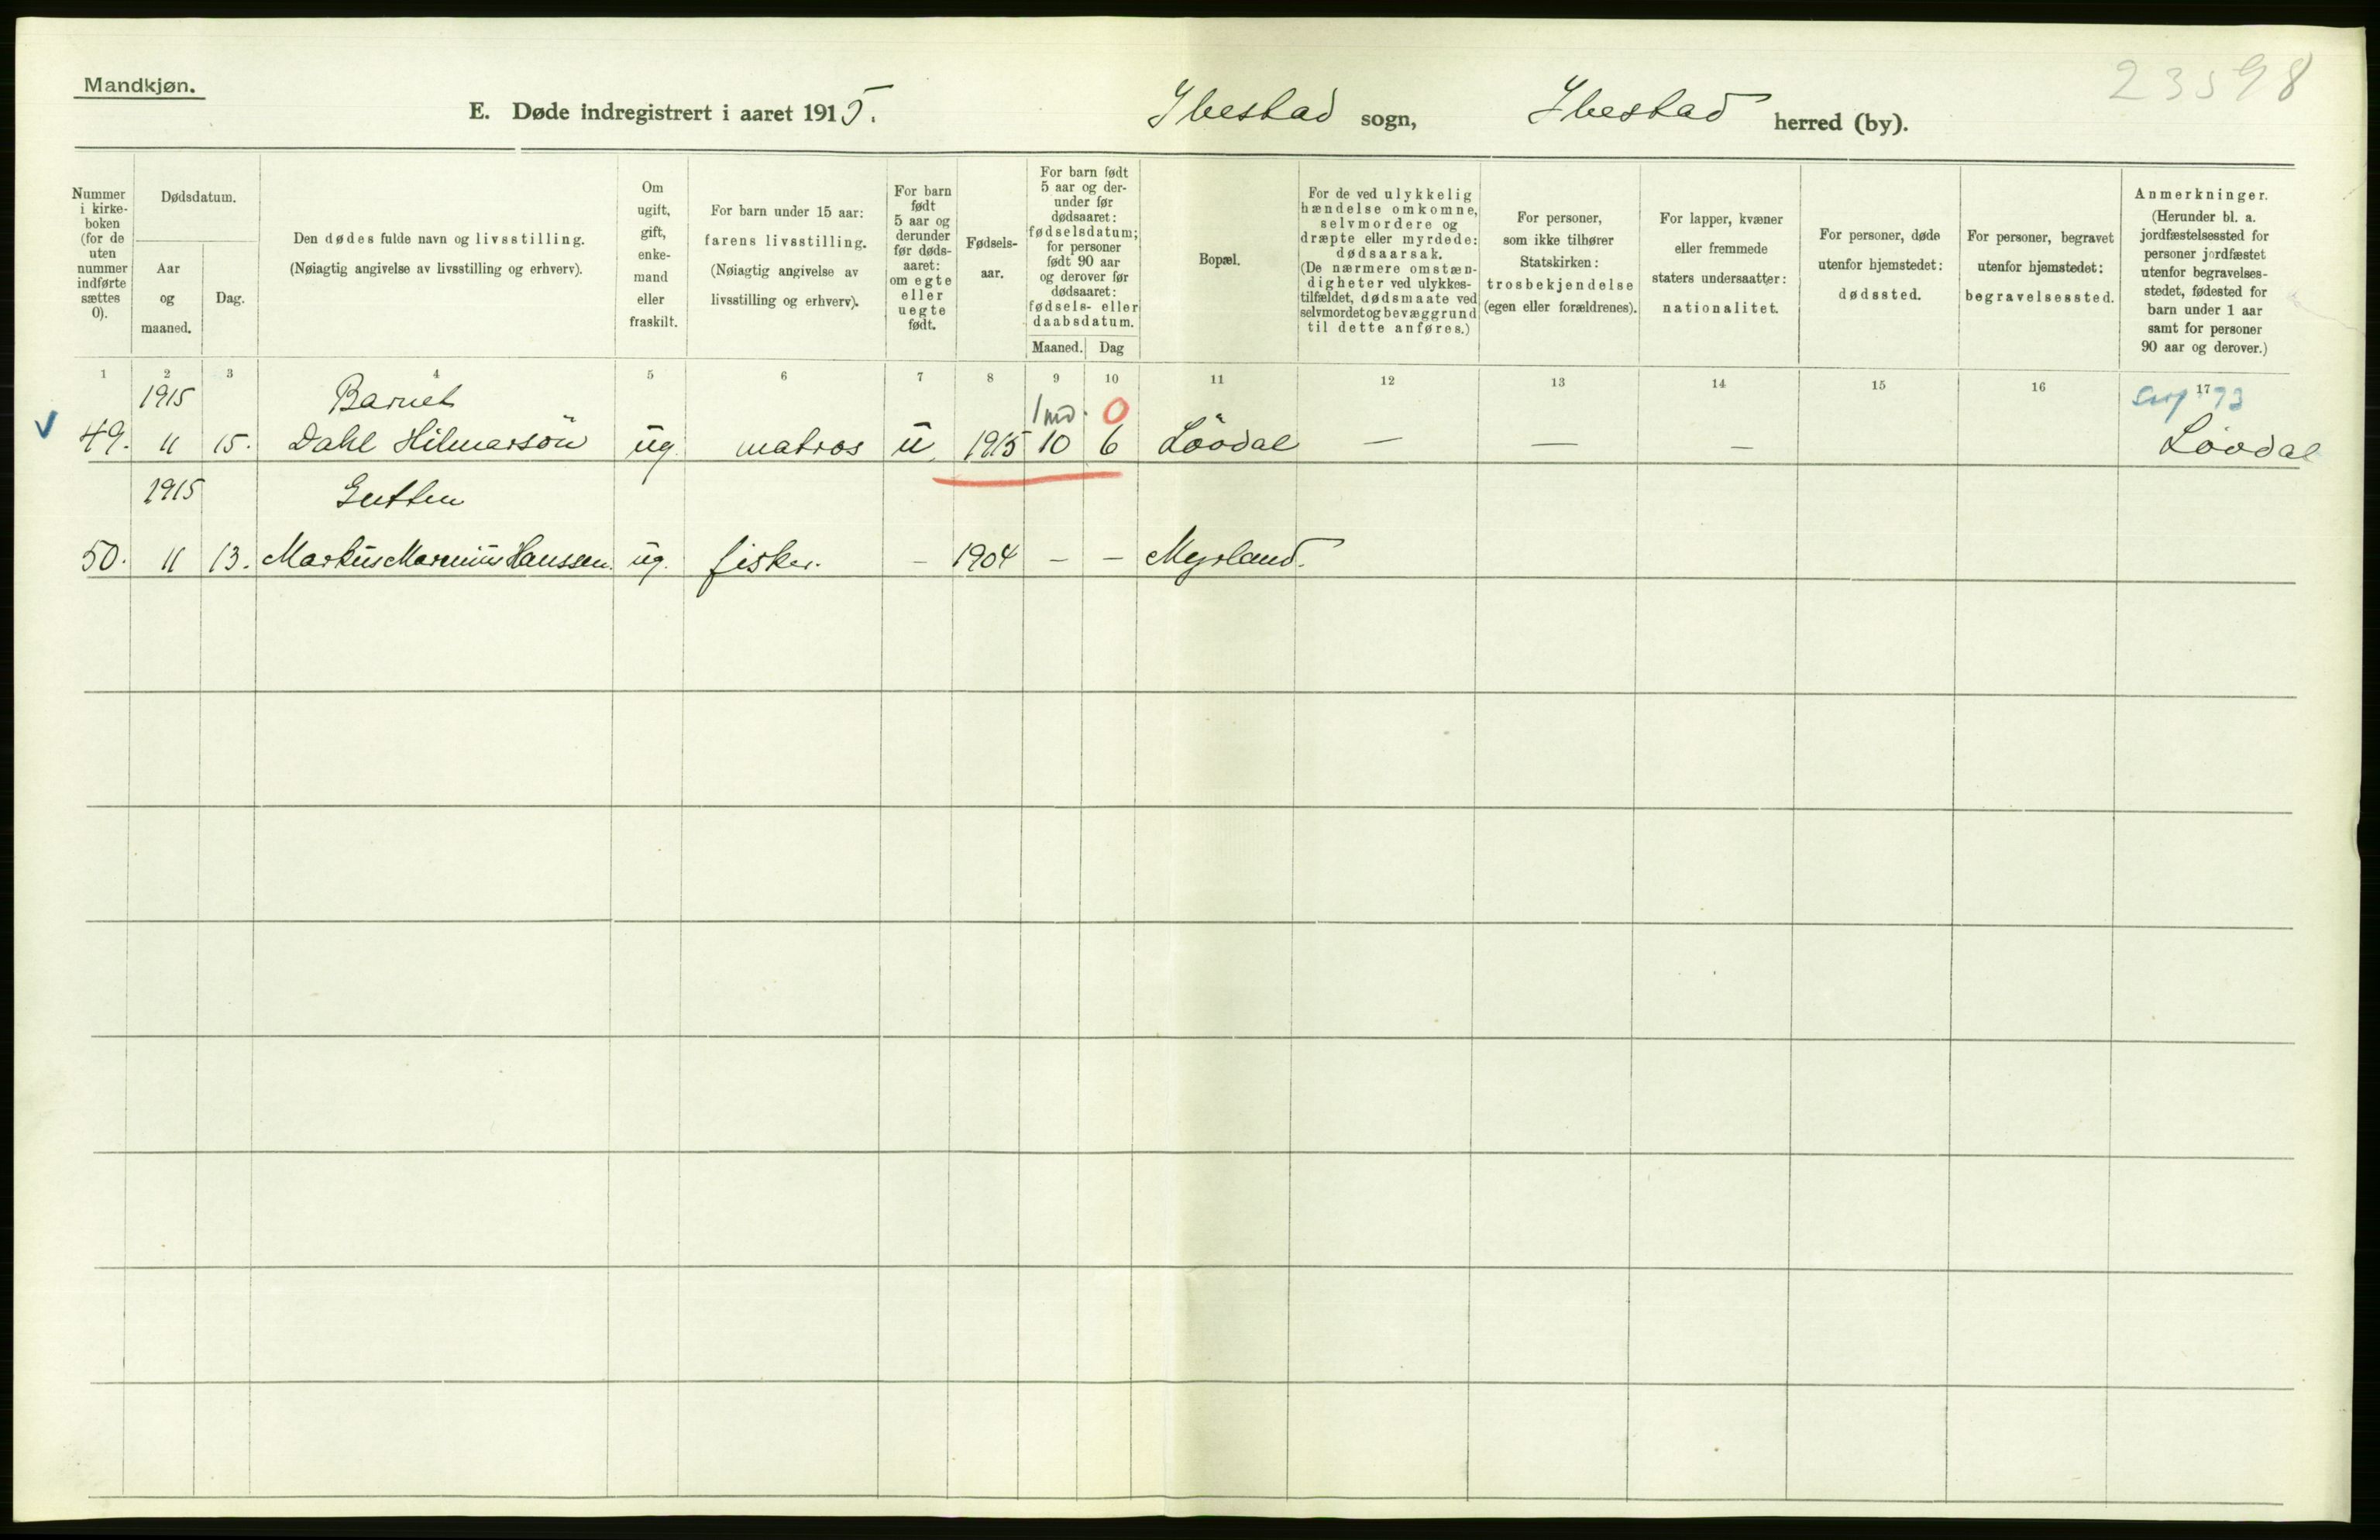 Mandkjøn.
23598
E. Døde indregistrert i aaret 1915. Ibestad sogn, Ibestad herred (by).
Nummer i kirke- boken (for de uten nummer indførte sættes 0).
Dødsdatum.
Aar og maaned.
Dag.
Den dødes fulde navn og livsstilling.
(Nøiagtig angivelse av livsstilling og erhverv).
Om ugift, gift, enke- mand eller fraskilt.
For barn under 15 aar: farens livsstilling.
(Nøiagtig angivelse av livsstilling og erhverv).
For barn født 5 aar og derunder før døds- aaret: om egte eller uegte født.
Fødsels- aar.
For barn født 5 aar og der- under før dødsaaret: fødselsdatum; for personer født 90 aar og derover før dødsaaret: fødsels- eller daabsdatum.
Maaned. Dag
Bopæl.
For de ved ulykkelig hændelse omkomne, selvmordere og dræpte eller myrdede: dødsaarsak.
(De nærmere omstæn- digheter ved ulykkes- tilfældet, dødsmaate ved selvmordet og bevæggrund til dette anføres.)
For personer, som ikke tilhører Statskirken: trosbekjendelse (egen eller forældrenes).
For lapper, kvæner eller fremmede staters undersaatter: nationalitet.
For personer, døde utenfor hjemstedet: dødssted.
For personer, begravet utenfor hjemstedet: begravelsessted.
Anmerkninger.
(Herunder bl. a. jordfæstelsessted for personer jordfæstet utenfor begravelses- stedet, fødested for barn under 1 aar samt for personer 90 aar og derover.)
1 2 3 4 5 6 7 8 9 10 11 12 13 14 15 16 17
1915 Barnet 1 md. 0 73
49. 11 15. Dahl Hilmarsön ug. matros u. 1915 10 6 Löodal — — — Löodal
1915 Gutten
50. 11 13. Markus Marenius Hanssen. ug. fisker. - 1904 - - Myrland.